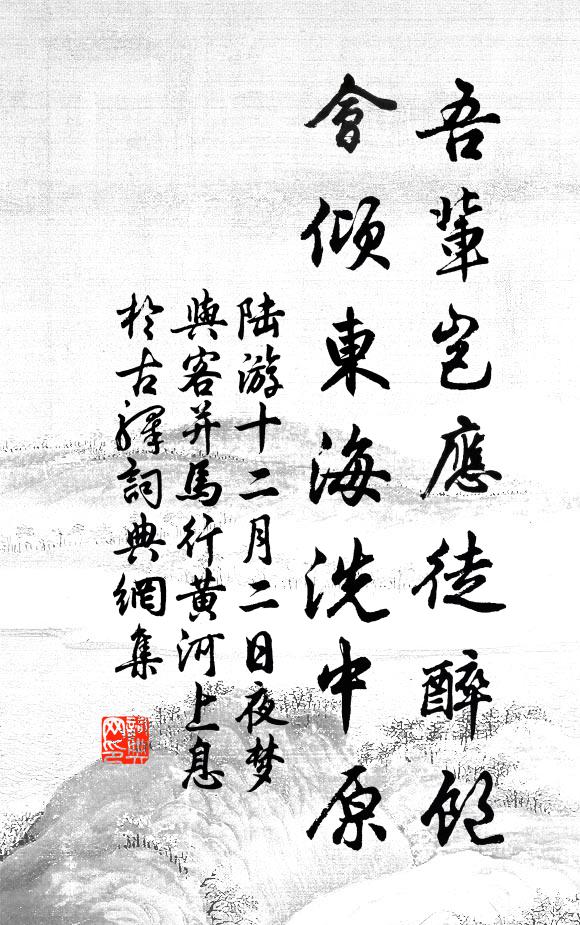 吾輩豈應徒醉飽
會傾東海洗中原
陸游十二月二日夜梦
與客并馬行黄河上息
於古驛詞典網集
詞典网印